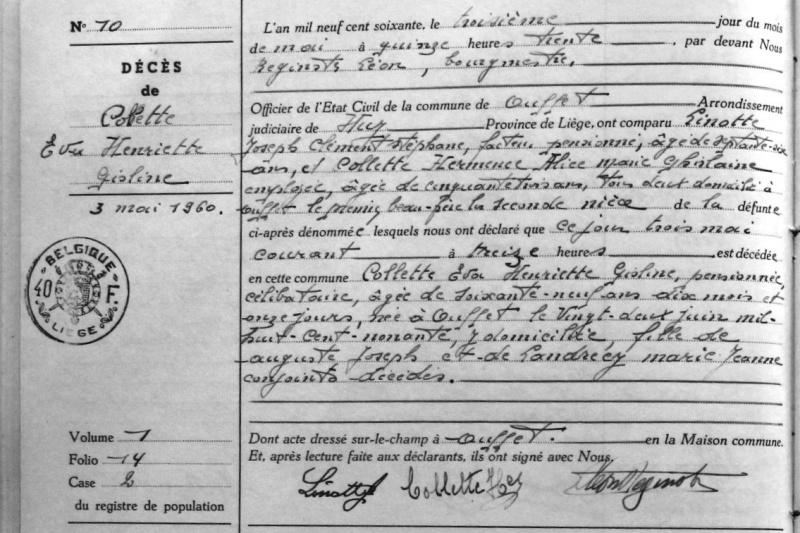 N° 10
DÉCÈS
de
Collette
Eva Henriette
Gisline
3 mai 1960.
BELGIQUE
40 F.
LIEGE
Volume 1
Folio 14
Case 2
du registre de population
L'an mil neuf cent soixante, le troisième jour du mois
de mai à quinze heures trente, par devant Nous
Reginster Léon, bourgmestre,
Officier de l'Etat Civil de la commune de Ouffet Arrondissement
judiciaire de Huy Province de Liège, ont comparu Linotte
Joseph Clément Stéphane, facteur pensionné, âgé de septante-six
ans, et Collette Hermence Alice Marie Ghislaine
employée, âgée de cinquante trois ans, tous deux domicilié à
Ouffet le premier beau-frère la seconde nièce de la défunte
ci-après dénommée lesquels nous ont déclaré que ce jour trois mai
courant à treize heures est décédée
en cette commune Collette Eva Henriette Gisline, pensionnée,
célibataire, âgée de soixante-neuf ans dix mois et
onze jours, née à Ouffet le vingt-deux juin mil-
huit-cent-nonante, y domiciliée, fille de
Auguste Joseph et de Landrecy Marie Jeanne
conjoints décédés.
Dont acte dressé sur-le-champ à Ouffet. en la Maison commune.
Et, après lecture faite aux déclarants, ils ont signé avec Nous.
Linotte J Collette